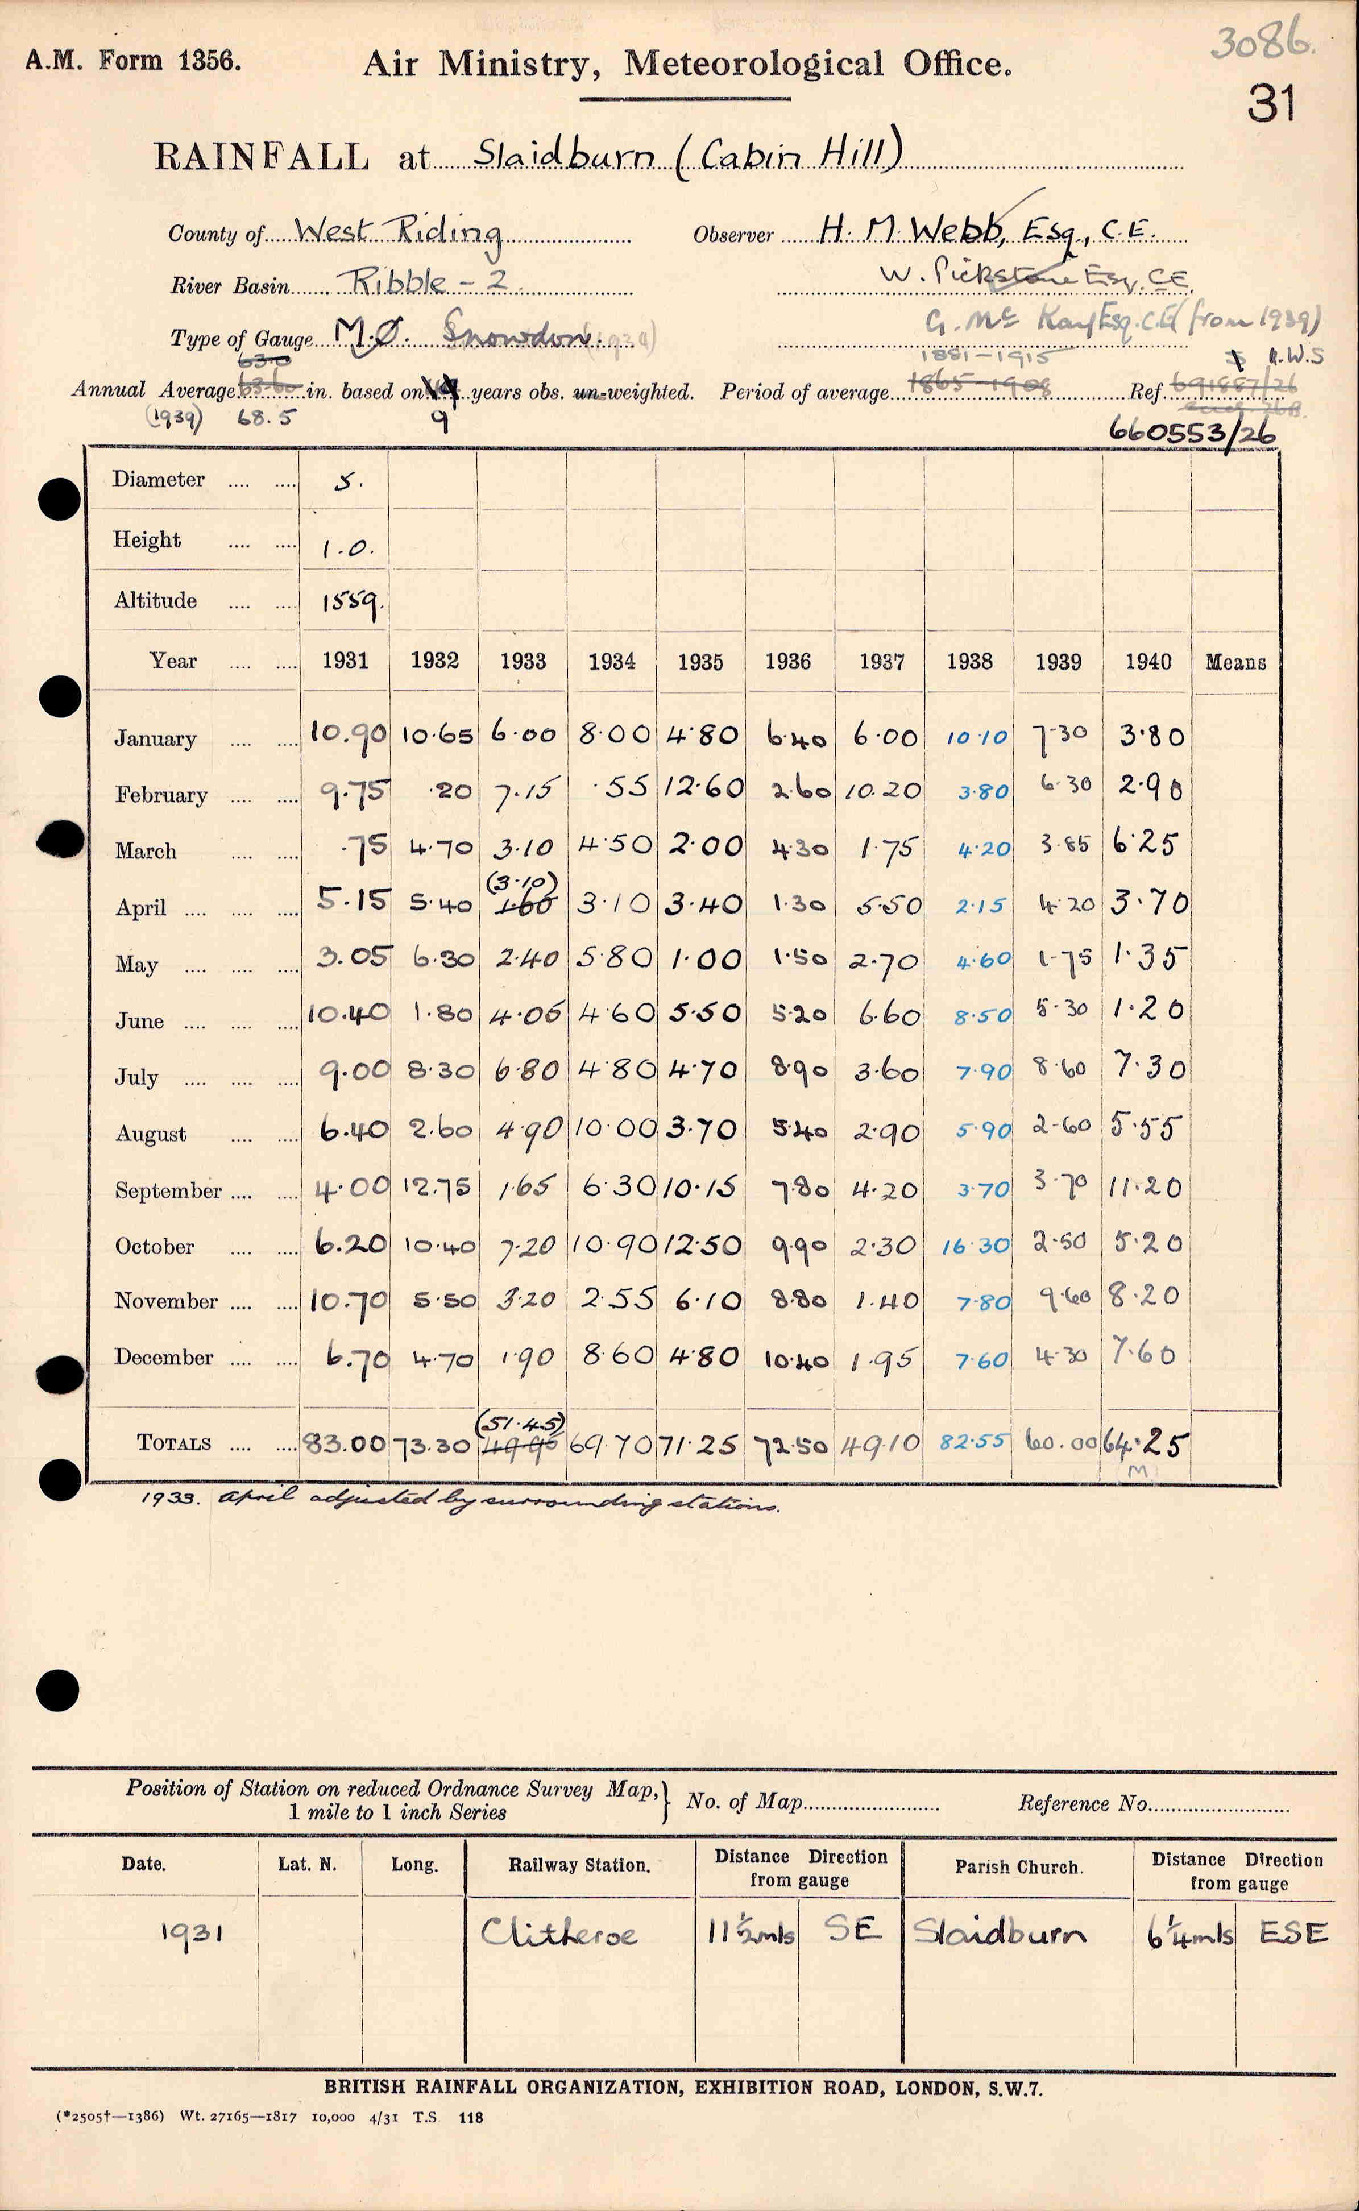 3086.
A.M. Form 1356. Air Ministry, Meteorological Office.
31
RAINFALL at Slaidburn (Cabin Hill)
County of West Riding Observer H. M. Webb, Esq., C.E.
River Basin Ribble - 2 W. Pickstone Esq. CE
Type of Gauge M.O. Snowdon. (1939) G. Mc Kay Esq. C.E. (from 1939)
63.0 1881-1915 R.W.S
Annual Average 63.60 in. based on years obs. un-weighted. Period of average 1865-1908 Ref. 691887/26
(1939) 68.5 9
660553/26
Diameter .... .... 5.
Height .... .... 1.0.
Altitude .... .... 1559.
Year .... .... 1931 1932 1933 1934 1935 1936 1937 1938 1939 1940 Means
January .... .... 10.90 10.65 6.00 8.00 4.80 6.40 6.00 10.10 7.30 3.80
February .... .... 9.75 .20 7.15 .55 12.60 2.60 10.20 3.80 6.30 2.90
March .... .... .75 4.70 3.10 4.50 2.00 4.30 1.75 4.20 3.85 6.25
(3.10)
April .... .... .... 5.15 5.40 1.60 3.10 3.40 1.30 5.50 2.15 4.20 3.70
May .... .... .... 3.05 6.30 2.40 5.80 1.00 1.50 2.70 4.60 1.75 1.35
June .... .... .... 10.40 1.80 4.05 4.60 5.50 5.20 6.60 8.50 5.30 1.20
July .... .... .... 9.00 8.30 6.80 4.80 4.70 8.90 3.60 7.90 8.60 7.30
August .... .... 6.40 2.60 4.90 10.00 3.70 5.40 2.90 5.90 2.60 5.55
September .... .... 4.00 12.75 1.65 6.30 10.15 7.80 4.20 3.70 3.70 11.20
October .... .... 6.20 10.40 7.20 10.90 12.50 9.90 2.30 16.30 2.50 5.20
November .... .... 10.70 5.50 3.20 2.55 6.10 8.80 1.40 7.80 9.60 8.20
December .... .... 6.70 4.70 1.90 8.60 4.80 10.40 1.95 7.60 4.30 7.60
(51.45)
TOTALS .... .... 83.00 73.30 49.95 69.70 71.25 72.50 49.10 82.55 60.00 64.25
(M)
1933. April adjusted by surrounding stations.
Position of Station on reduced Ordnance Survey Map, } No. of Map Reference No.
1 mile to 1 inch Series
Date. Lat. N. Long. Railway Station. Distance Direction from gauge Parish Church. Distance Direction from gauge
1931 Clitheroe 11½mls SE Slaidburn 6¼mls ESE
BRITISH RAINFALL ORGANIZATION, EXHIBITION ROAD, LONDON, S.W.7.
(*2505†—1386) Wt. 27165—1817 10,000 4/31 T.S 118